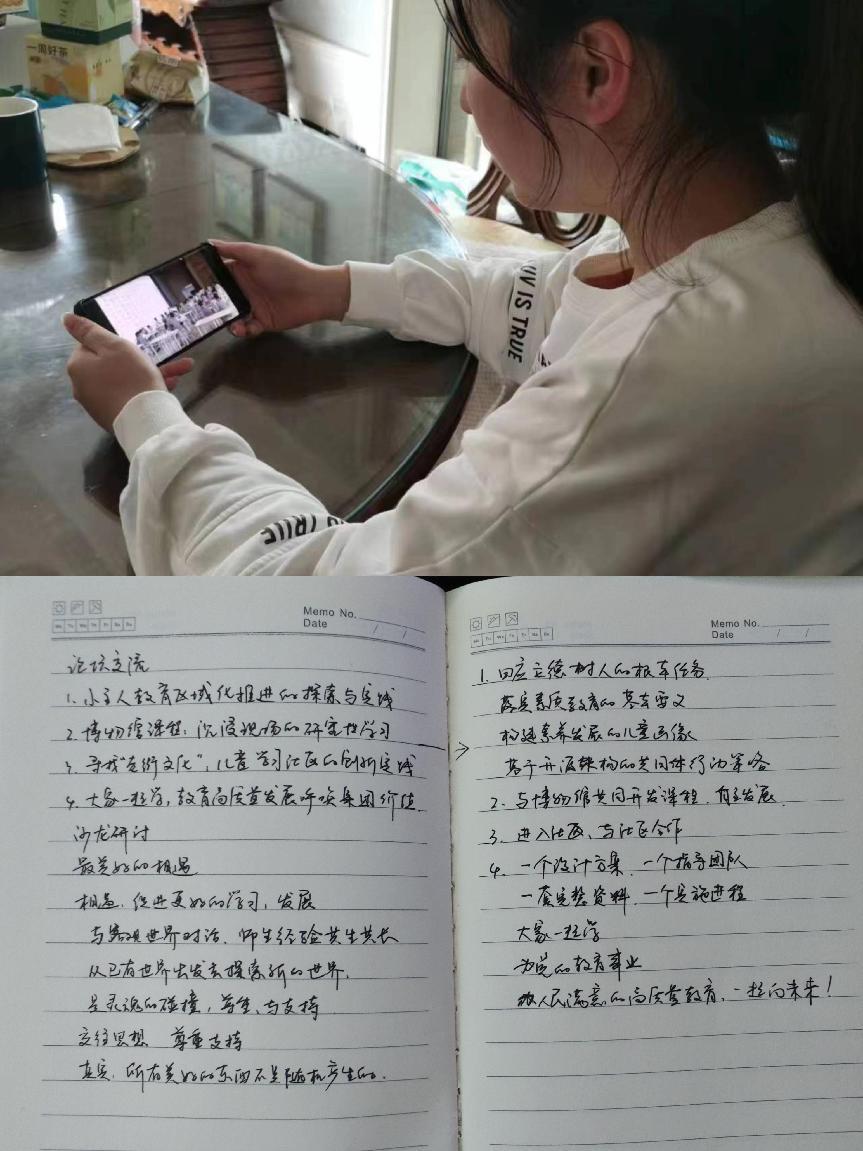 一周好茶
UV IS TRUE
IS TRUE
Memo No.
Date / /
Mo Tu We Th Fr Sa Su
论坛交流
1. 小主人教育区域化推进的探索与实践
2. 博物馆课程：沉浸现场的研究性学习
3. 寻找“街文化”，儿童学习社区的创新实践
4. 大家一起学，教育高质量发展呼唤集团价值
沙龙研讨
最美好的相遇
相遇，促进更好的学习，发展
与客观世界对话，师生经验共生共长
从已有世界出发去探索新的世界.
是灵魂的碰撞，与支持
交往思想 尊重支持
真实，所有美好的东西不是随机产生的.
Memo No.
Date / /
Mo Tu We Th Fr Sa Su
1. 回应立德树人的根本任务
落实素质教育的基本要义
构建素养发展的儿童画像
基于开源架构的共同体行动策略
2. 与博物馆共同开发课程，自主发展
3. 进入社区，与社区合作
4. 一个设计方案，一个指导团队
一套完整资料，一个实施进程
大家一起学
为党的教育事业
办人民满意的高质量教育，一起向未来！